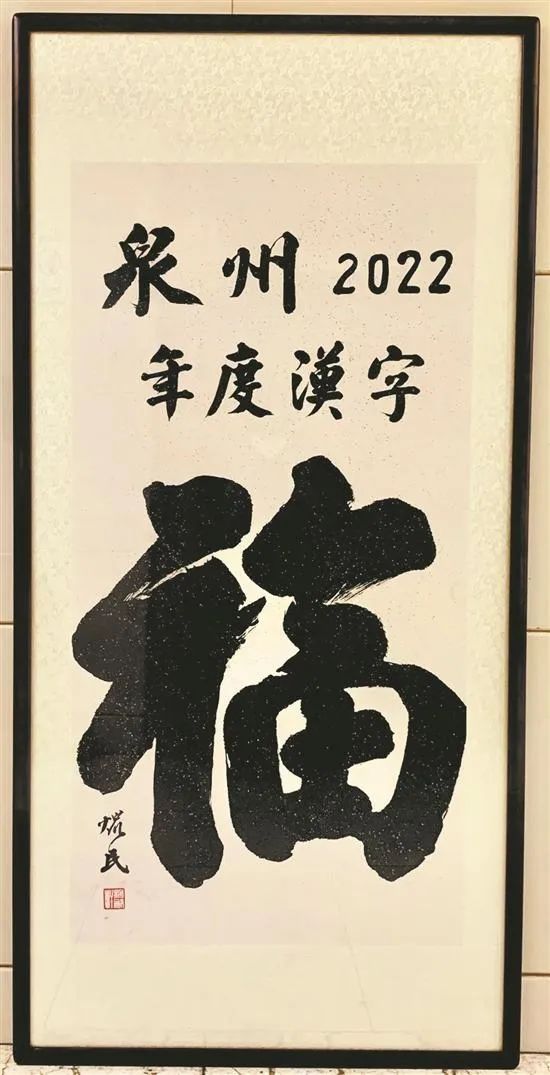 泉州2022
年度漢字
福
民